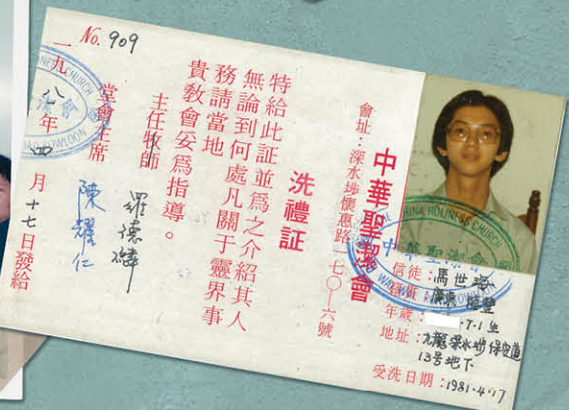 No. 909
中華聖潔會
會址：深水埗懷惠路一七〇—六號
洗禮証
特給此証並爲之介紹其人
無論到何處凡關于靈界事
務請當地
貴教會妥爲指導。
主任牧師 羅德麟
堂會主席 陳耀仁
一九八 年四月十七日發給
CHINA HOLINESS CHURCH
信徒：馬世
籍貫：廣東
年歲： ·7·1 生
地址：九龍深水埗保安道
13号地下
受洗日期：1981·4·17